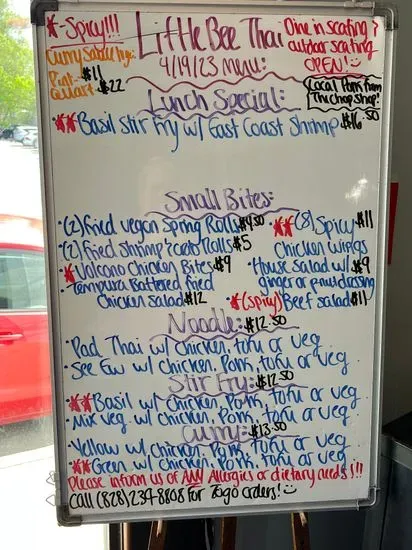 *-Spicy!!!
Little Bee Thai
Dine in seating &
outdoor seating
OPEN!
4/19/23 Menu:
Pint- $11
Quart- $22
Local Pork from
The Chop Shop!
Lunch Special:
**Basil Stir Fry w/ East Coast Shrimp $16.50
Small Bites:
(2) Fried Vegan Spring Rolls $4.50
(2) Fried Shrimp Egg Rolls $5
*Volcano Chicken Bites $9
Tempura Battered Fried
Chicken Salad $12
**(8) Spicy $11
Chicken Wings
House Salad w/ $9
ginger or dressing
*(spicy) Beef Salad $11
Noodle: $12.50
Pad Thai w/ Chicken, tofu or veg
See Ew w/ Chicken, Pork, tofu or veg
Stir Fry: $12.50
**Basil w/ Chicken, Pork, tofu or veg
Mix veg. w/ Chicken, Pork, tofu or veg
Curry: $13.50
Yellow w/ Chicken, Pork, Tofu or Veg
**Green w/ Chicken, Pork, Tofu or Veg
Please inform us of ANY Allergies or dietary needs!!!
Call (828)239-8808 for Togo orders!